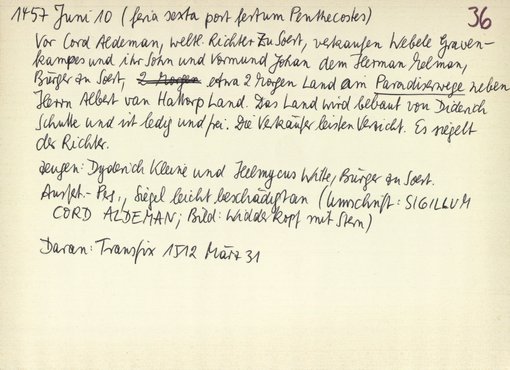 1457 Juni 10 (feria sexta post festum Penthecostes) 36
Vor Cord Aldeman, weltl. Richter zu Soest, verkaufen Webele Graven-
kampes und ihr Sohn und Vormund Johan dem Herman Melman,
Bürger zu Soest, 2 Morgen etwa 2 Morgen Land am Paradiserwege neben
Herrn Albert van Hattorp Land. Das Land wird bebaut von Diderich
Schutte und ist ledig und frei. Die Verkäufer leisten Verzicht. Es siegelt
der Richter.
Zeugen: Dyderich Kleine und Witte, Bürger zu Soest.
Ausf.- Siegel leicht beschädigt an (Umschrift: SIGILLUM
CORD ALDEMAN; Bild: Widderkopf mit Stern)
Daran: Transfix 1512 März 31